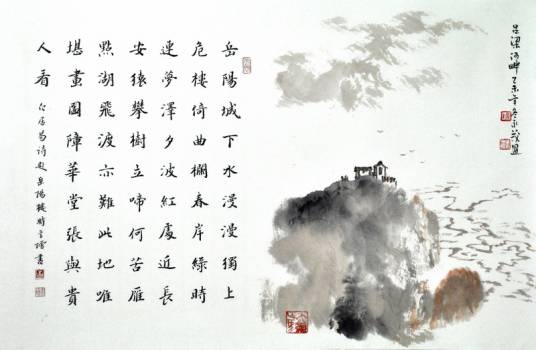 岳陽城下水漫漫獨上
危樓倚曲欄春岸綠時
連夢澤夕波紅處近長
安猿攀樹立啼何苦雁
點湖飛渡亦難此地唯
堪畫圖障華堂張與貴
人看
白居易詩題岳陽樓時書
呂梁河畔乙未